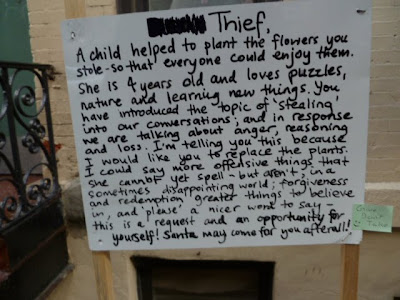 Thief,
A child helped to plant the flowers you
stole - so that everyone could enjoy them.
She is 4 years old and loves puzzles,
nature and learning new things. You
have introduced the topic of 'stealing'
into our conversations; and in response
we are talking about anger, reasoning
and loss. I'm telling you this because
I would like you to replace the plants.
I could say more offensive things that
she cannot yet spell - but aren't, in a
sometimes disappointing world; forgiveness
and redemption greater things to believe
in, and 'please' a nicer word to say -
this is a request and an opportunity for
yourself! Santa may come for you afterall!